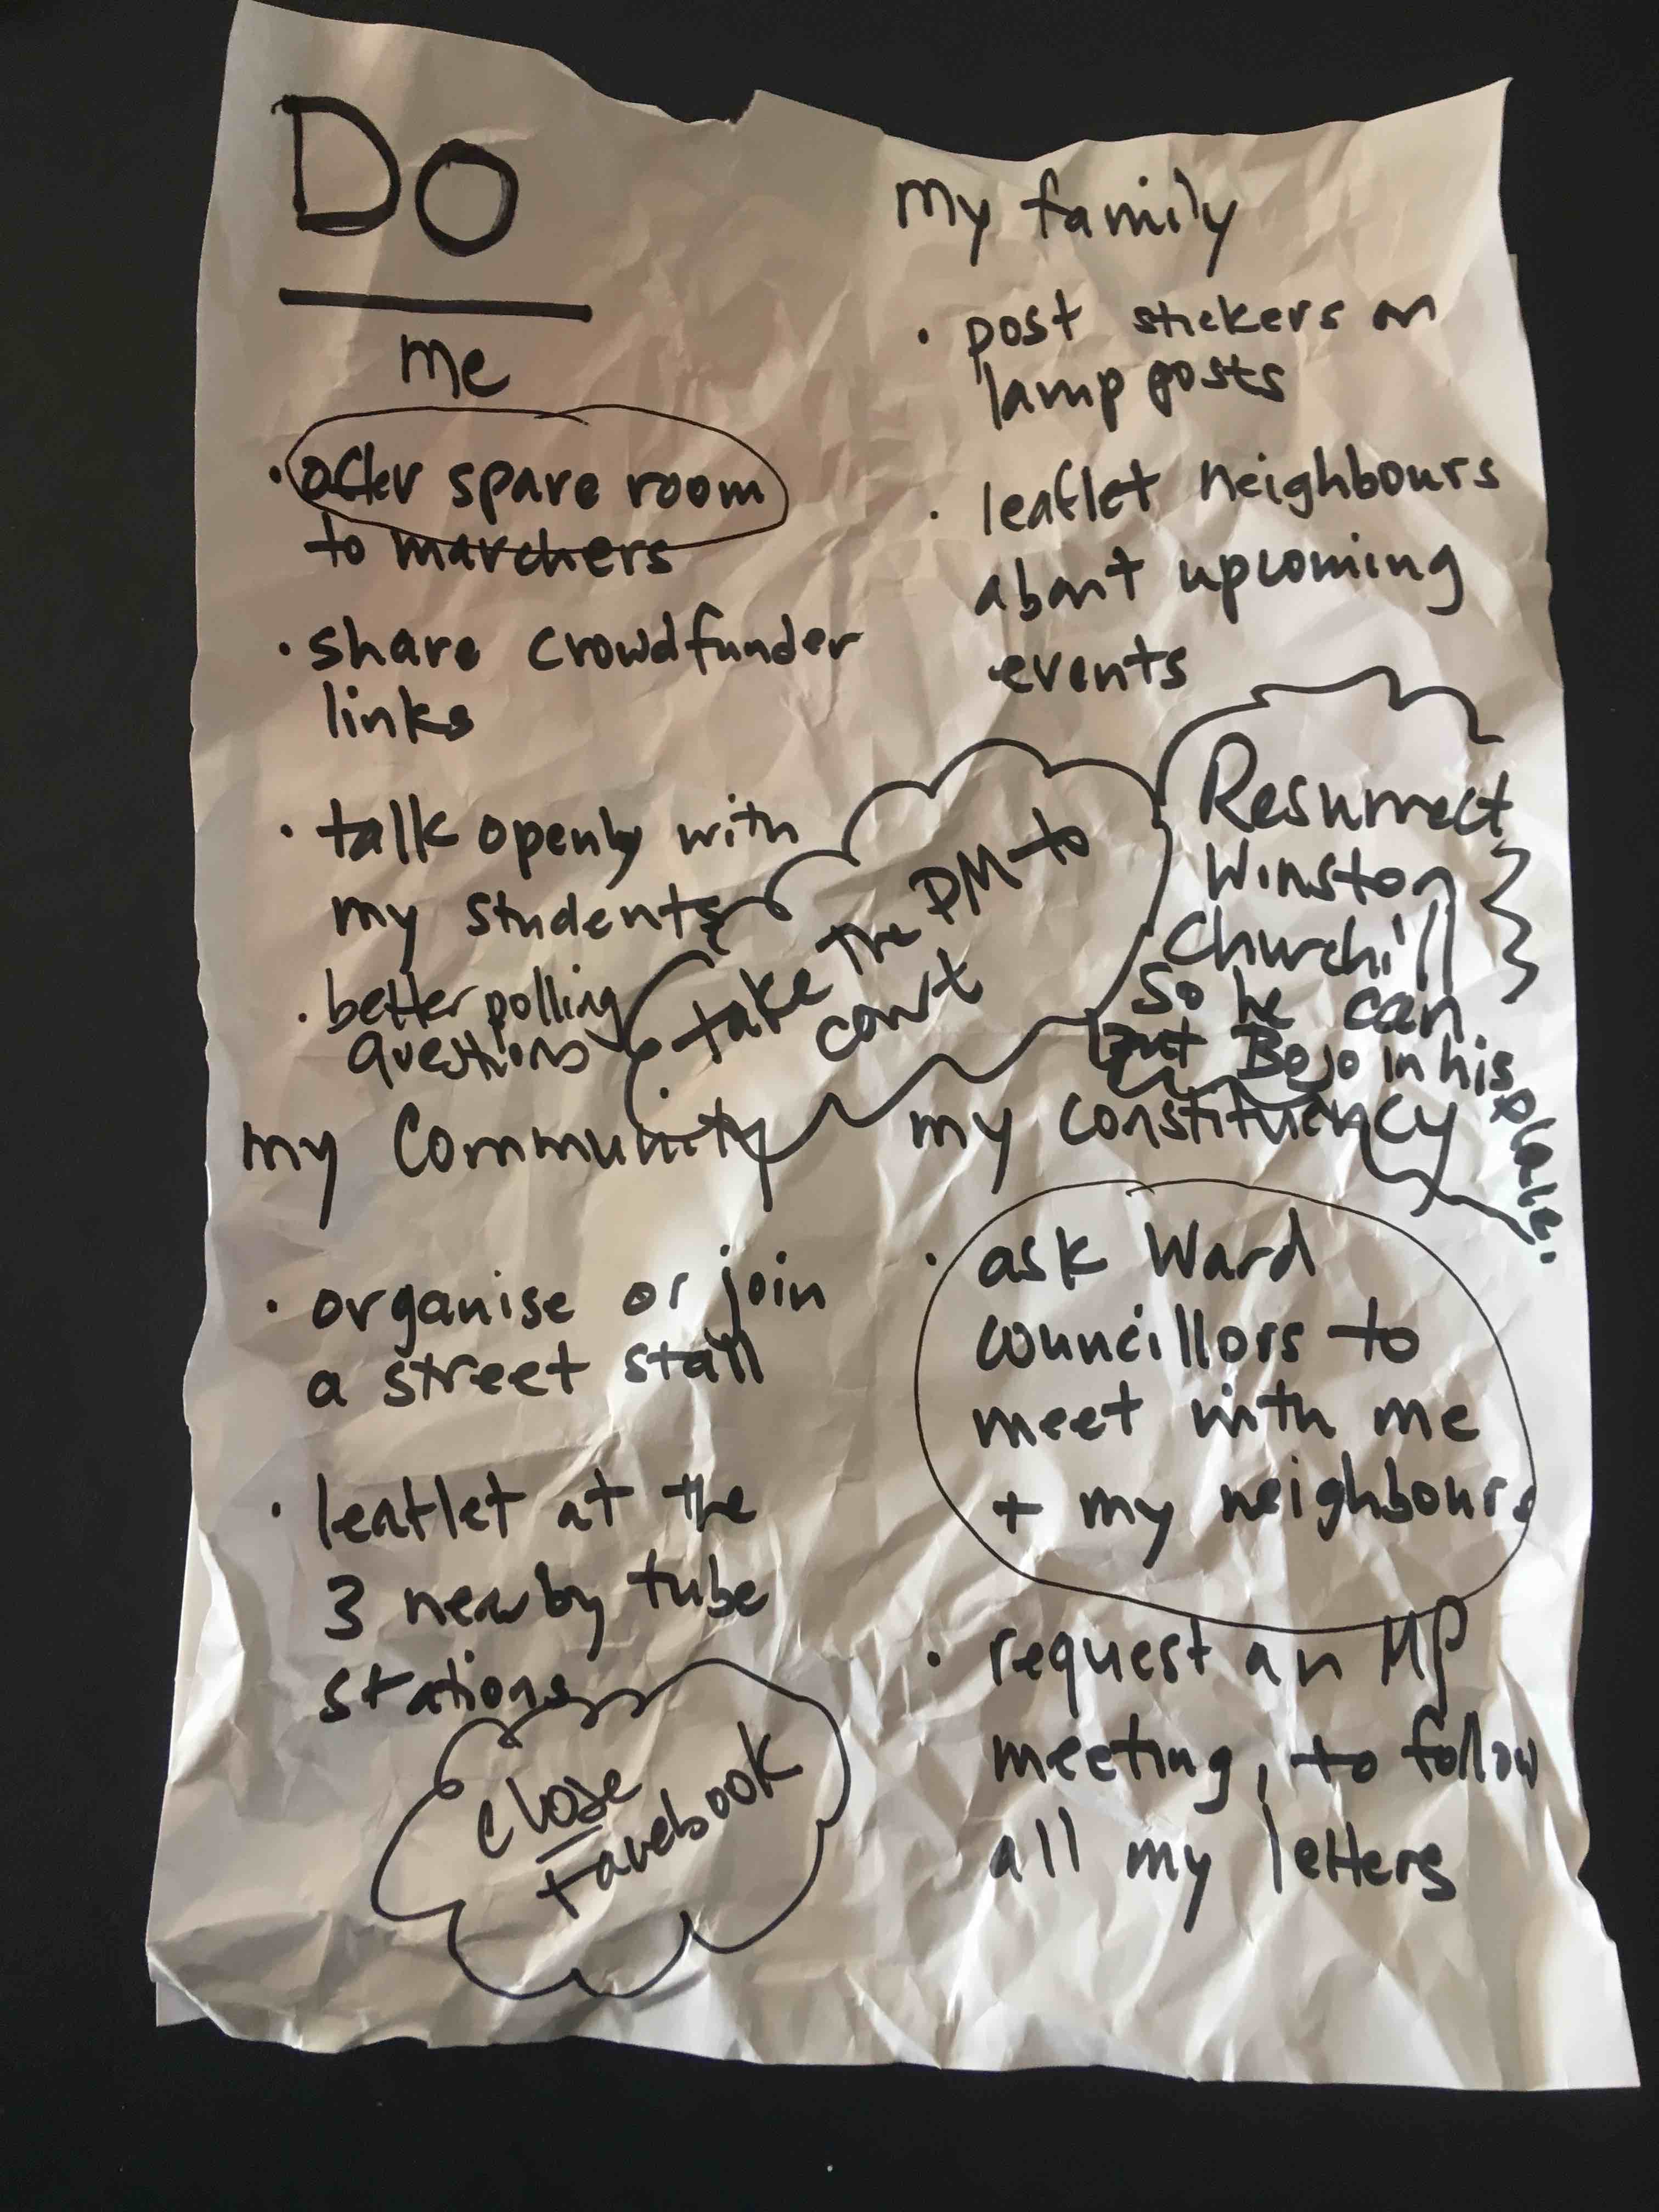 Do
me
• offer spare room
to marchers
• share crowdfunder
links
• talk openly with
my students
• better polling
questions
my family
• post stickers on
lamp posts
• leaflet neighbours
about upcoming
events
take the PM to
court
Resurrect
Winston
Churchill
so he can
put BoJo in his
place.
my Community
• organise or join
a street stall
• leaflet at the
3 nearby tube
stations
close
Facebook
my constituency
• ask Ward
councillors to
meet with me
+ my neighbours
• request an MP
meeting, to follow
all my letters